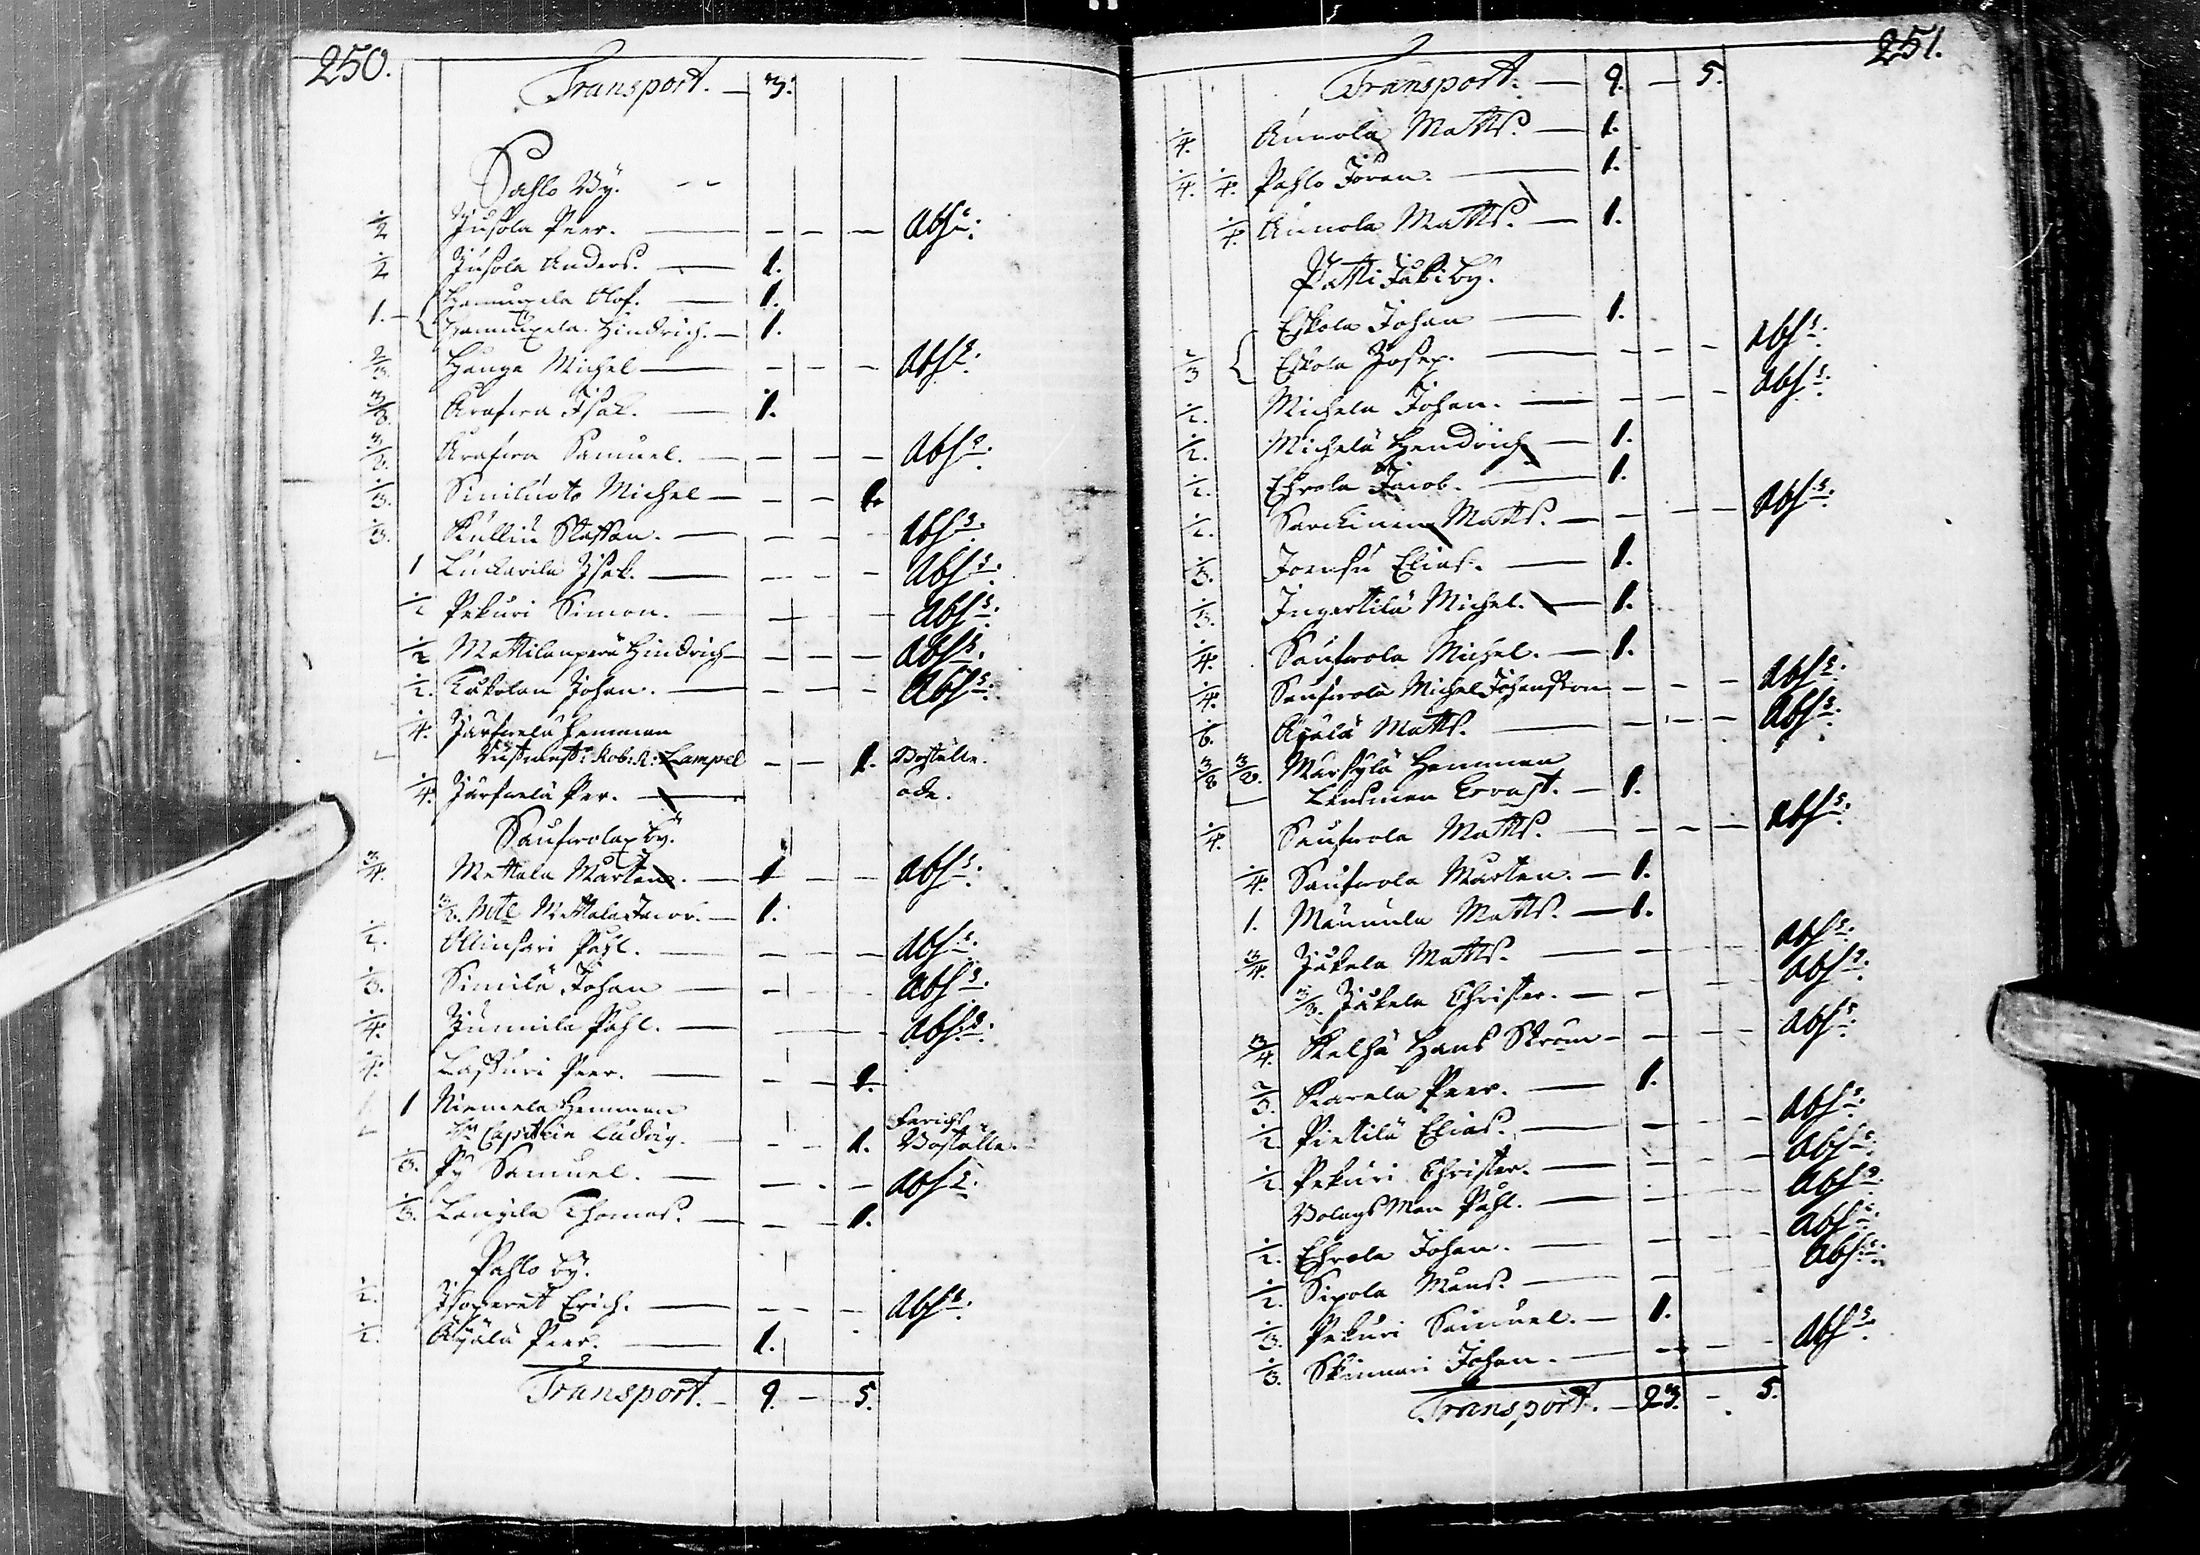 250.
Transport. — 3.
Pahlo By. - -
1/2 Jusola Peer. — — — — Abs:
1/2 Jusola Anders. — 1.
Hannuxela Olof. — 1.
1. — Hannuxela Hindrich. — 1.
2/3. Hanga Michel — — — — Abs:
3/8. Arafwa Isak. — 1.
3/8. Arafwa Samuel. — — — Abs:
1/3. Similuoto Michel — — — 1.
1/3. Kullin Staffan. — — — Abs:
1 Luckarila Isak. — — — — Abs:
1/2 Pekuri Simon. — — — Abs:
1/2 Mattilanperä Hindrich — — — Abs:
1/2. Kukolan Johan. — — — — Abs:
1/4. Järfwelä Hemman
Rustmest: Rob: R: Lampel — — 1. Boställe.
1/4. Järfwelä Per. — öde.
Saufwolax by.
3/4. Mattala Mårten. — 1 — — Abs:
3/4. Mattala Jacob. — 1.
1/2. Olinsari Påhl. — — — — Abs:
1/3. Similä Johan — — — Abs:
1/4. Junnila Påhl. — — — Abs:
1/4. Lasturi Peer. — — — 1.
1 Niemelä Hemman
Hr Capitein Ludvig. — — 1. Boställe.
1/3. Py Samuel. — — — Abs:
1/3. Langila Thomas. — — — 1.
Pahlo by.
1/2. Isoperet Erich. — — — — Abs:
1/2. Äÿälä Peer. — 1.
Transport. — 9. — 5.
251.
Transport. — 9. — 5.
1/4. Annola Matts. — 1.
1/4. 1/4. Pahlo Jöran. — 1.
1/4. Annola Matts. — 1.
Pattijoki by.
Eskola Johan — 1.
2/3 Eskola Josep. — — — — Abs:
1/2. Michela Johan. — — — — Abs:
1/2. Michelä Hendrich — 1.
1/2. Ehrola Jacob. — 1.
1/2. Sarckinen Matts. — — — — Abs:
1/3. Jornsu Elias. — 1.
1/3. Ingertilä Michel. — 1.
1/4. Saufwola Michel. — 1.
1/4. Saufwola Michel Johansson — — — Abs:
1/6. Äÿälä Matts. — — — — Abs:
3/8 3/8. Märsylä Hemman
Lensman Ervast. — 1.
1/4. Saufwola Matts. — — — — Abs:
1/4. Saufwola Mårten. — 1.
1. Mannila Matts. — 1.
3/4. Jukela Matts. — — — — Abs:
3/8. Jukela Christer. — — — — Abs:
3/4. Kelhä Hans Ström — — — — Abs:
2/3. Karela Peer. — 1.
1/2. Pietilä Elias. — — — — Abs:
1/2. Pekuri Christer. — — — — Abs:
Bolags Man Påhl. — — — — Abs:
1/2. Ehrola Johan. — — — — Abs:
1/2. Sipola Måns. — — — Abs:
1/3. Pekuri Samuel. — 1.
1/3. Skinnari Johan. — — — — Abs:
Transport. — 23. — 5.